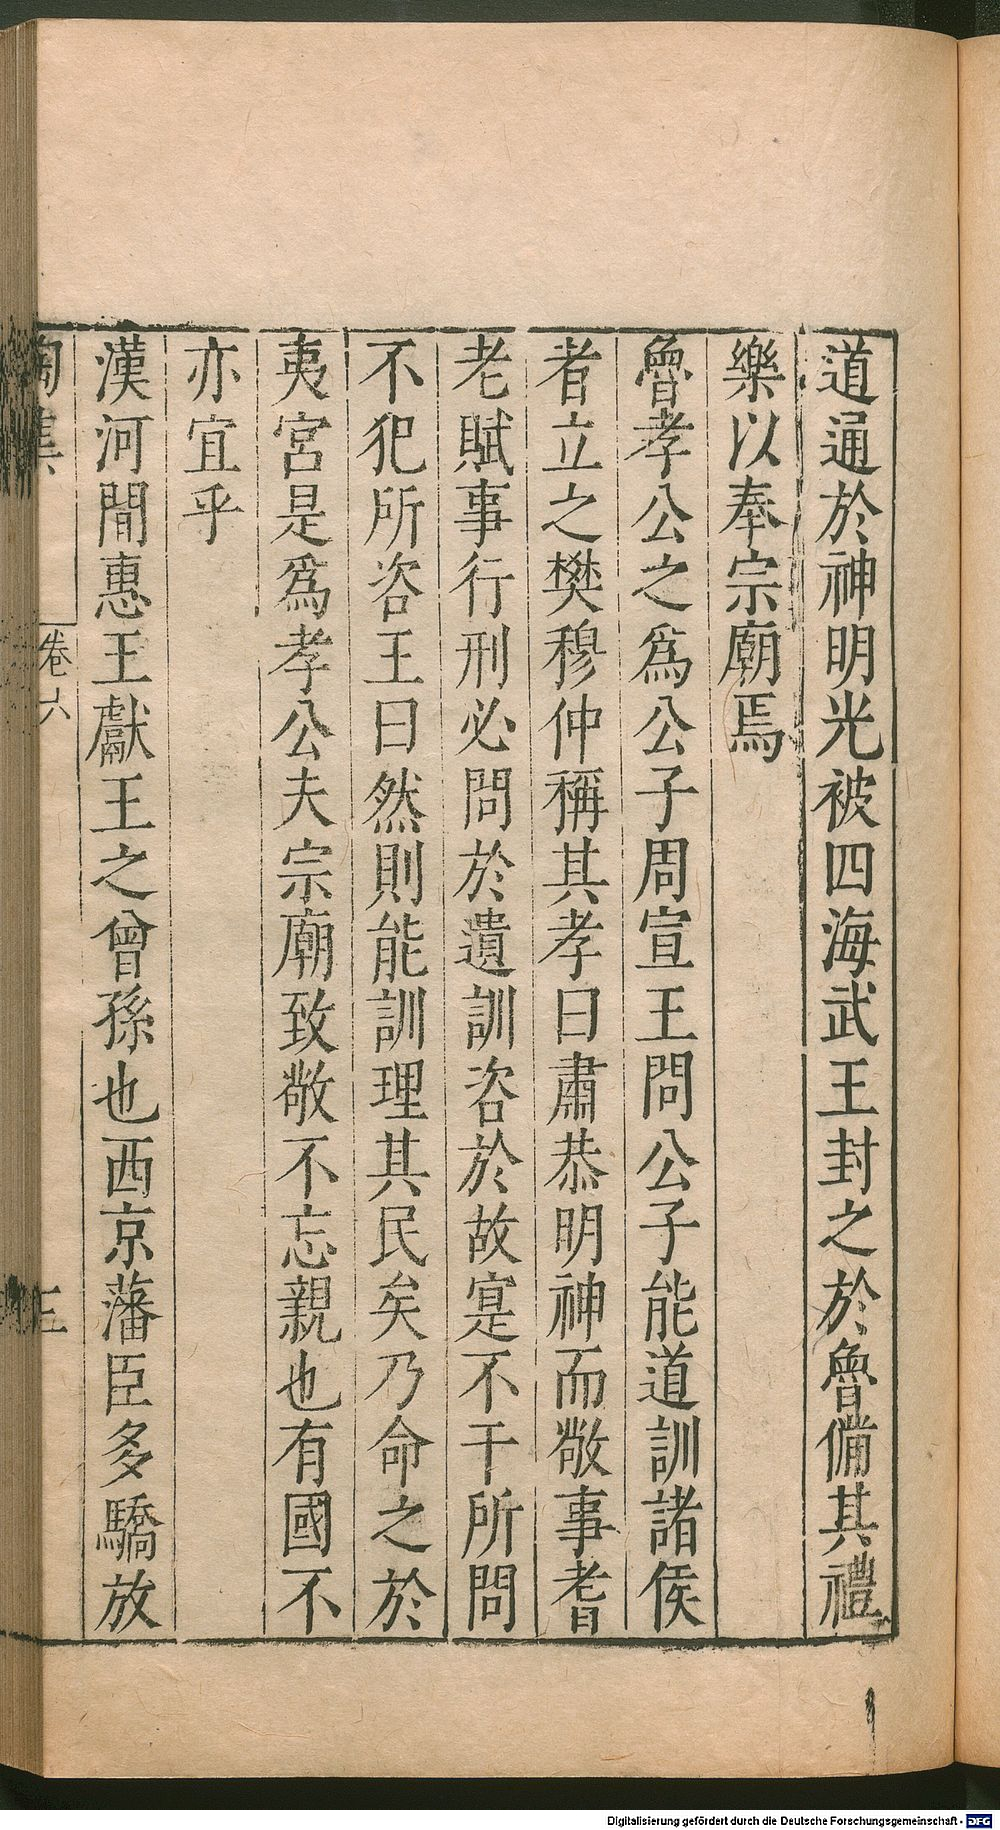 道通於神明光被四海武王封之於魯備其禮
樂以奉宗廟焉
魯孝公之爲公子周宣王問公子能道訓諸侯
者立之樊穆仲稱其孝曰肅恭明神而敬事耆
老賦事行刑必問於遺訓咨於故寔不干所問
不犯所咨王曰然則能訓理其民矣乃命之於
夷宮是爲孝公夫宗廟致敬不忘親也有國不
亦宜乎
漢河間惠王獻王之曾孫也西京藩臣多驕放
卷六
Digitalisierung gefördert durch die Deutsche Forschungsgemeinschaft - DFG